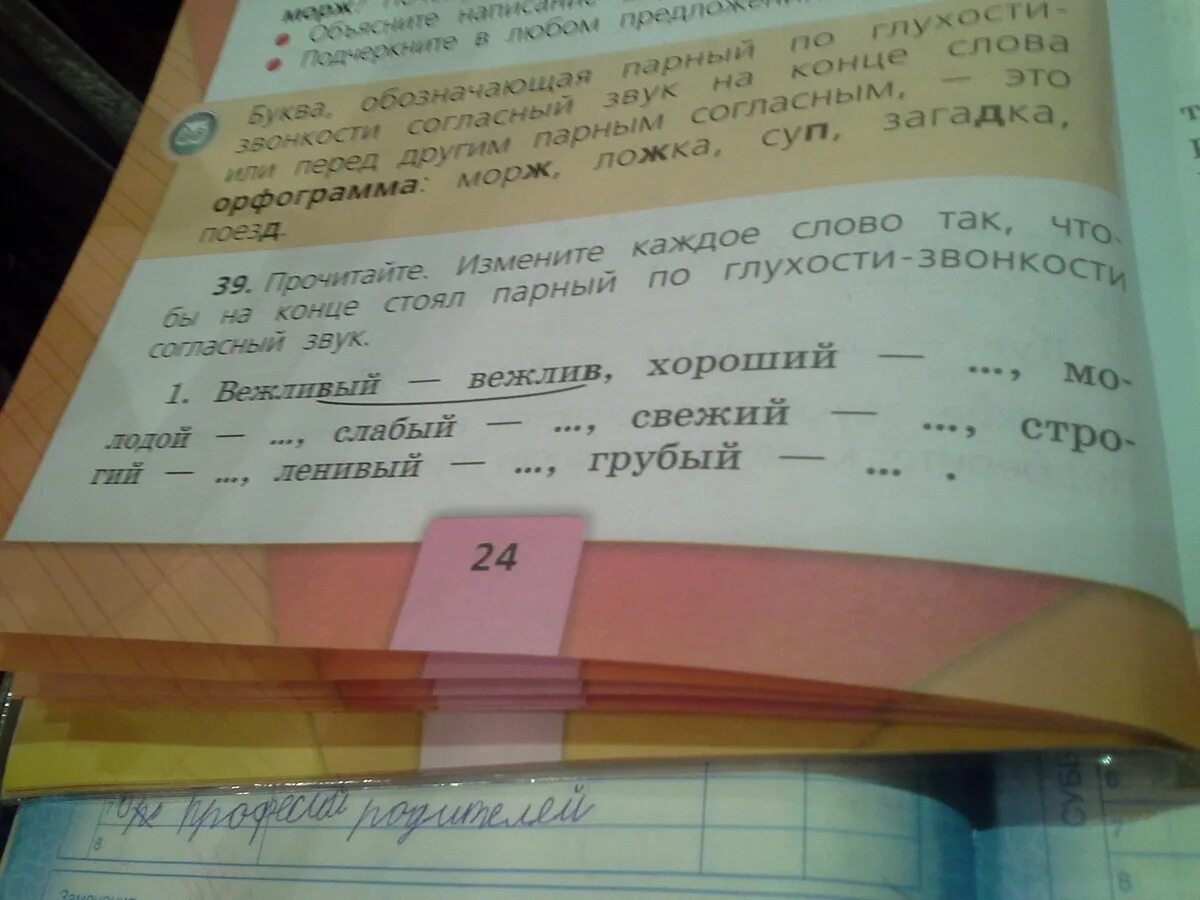 морж
Объясните написание
Подчеркните в любом предложени
Буква, обозначающая парный по глухости-
звонкости согласный звук на конце слова
или перед другим парным согласным, — это
орфограмма: морж, ложка, суп, загадка,
поезд.
39. Прочитайте. Измените каждое слово так, что-
бы на конце стоял парный по глухости-звонкости
согласный звук.
1. Вежливый — вежлив, хороший — ..., мо-
лодой — ..., слабый — ..., свежий — ..., стро-
гий — ..., ленивый — ..., грубый — ... .
24
профессии родителей
8
СУББ
6
7
8